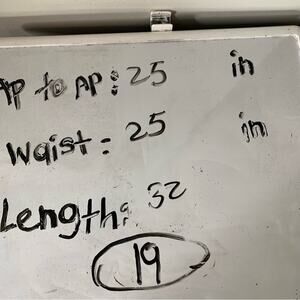 AP to AP: 25 in
Waist: 25 in
Length: 32
19